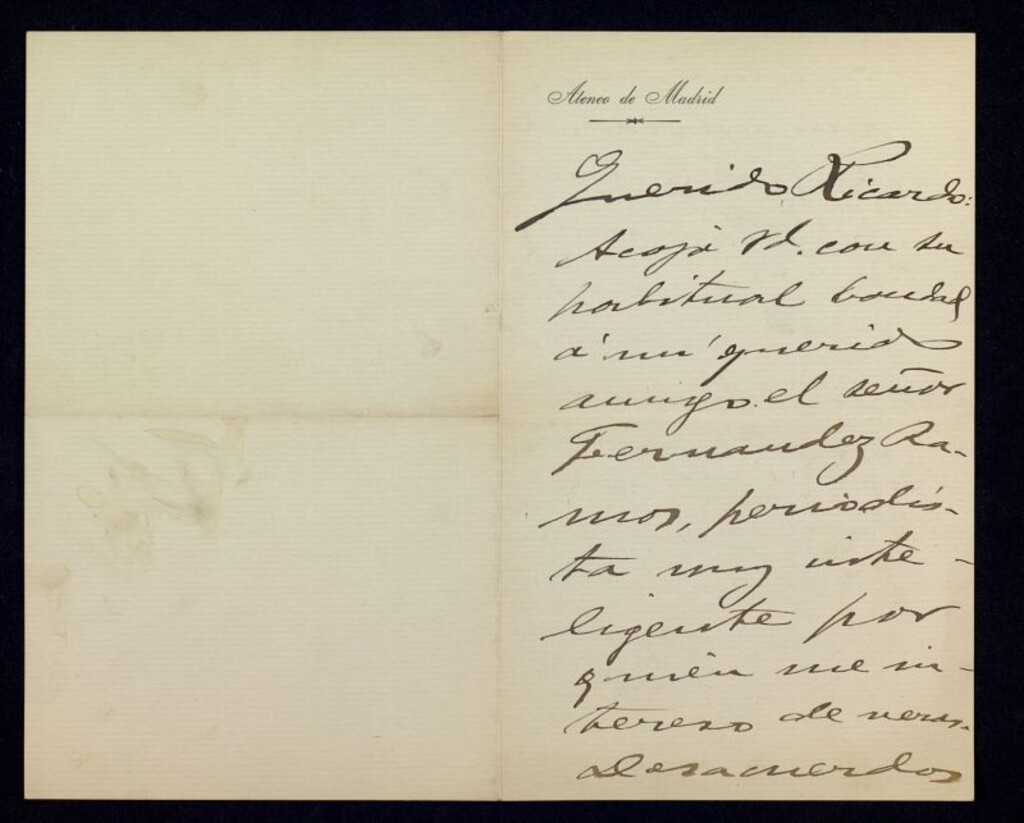 Ateneo de Madrid
Querido Ricardo:
Acoja Vd. con su
habitual bondad
á mi querido
amigo el señor
Fernandez Ra-
mos, periodis-
ta muy inte-
ligente por
quién me in-
tereso de veras.
Desacuerdos